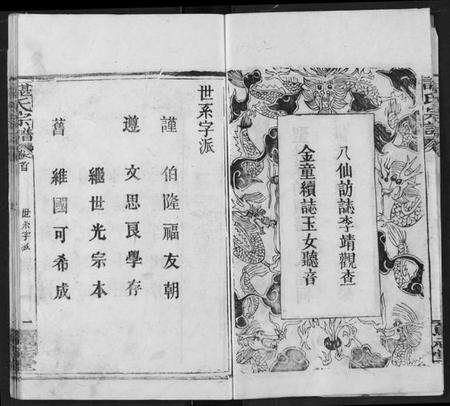 八仙訪誌李靖觀查
金童續誌玉女聽音
世系字派
謹 伯隆福友朝
遵 文思良學存
繼世光宗本
舊 維國可希成
諶氏宗譜
卷首
世系字派
一